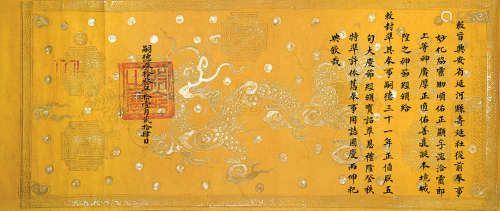 敕旨興安省延河縣壽延社從前奉事
化協靈助順佑正顯孚洽靈郎
上等神廣厚正直佑善敦凝本境城
隍之神節經頒給
敕封準其奉事嗣德三十一年正值朕五
旬大慶節經頒寶詔覃恩禮隆登秩
特準許依舊奉事用誌國慶而伸祀
典欽哉
嗣德拾壹月貳拾肆日